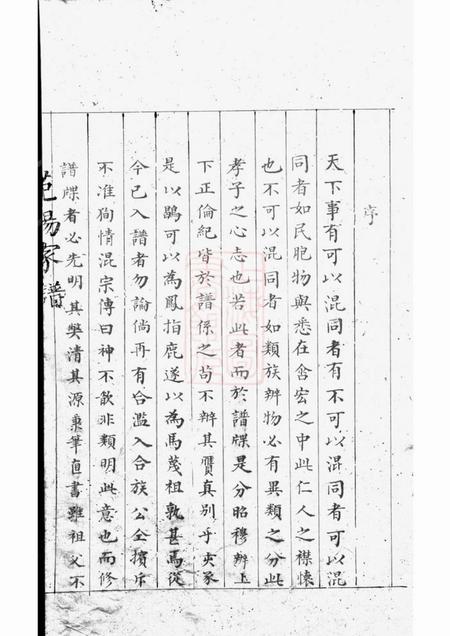 序
天下事有可以混同者有不可以混同者可以混
同者如民胞物與悉在含宏之中此仁人之襟懷
也不可以混同者如類族辨物必有異類之分此
孝子之心志也若此者而於譜牒是分昭穆辨上
下正倫紀皆於譜係之苟不辨其贋真別乎夾家
是以鷃可以為鳳指鹿遂以為馬蔑祖孰甚焉從
今已入譜者勿論倘再有合濫入合族公仝擯斥
不准狥情混宗傳曰神不歆非類明此意也而修
譜牒者必先明其弊清其源秉筆直書雖祖父不
范陽家譜